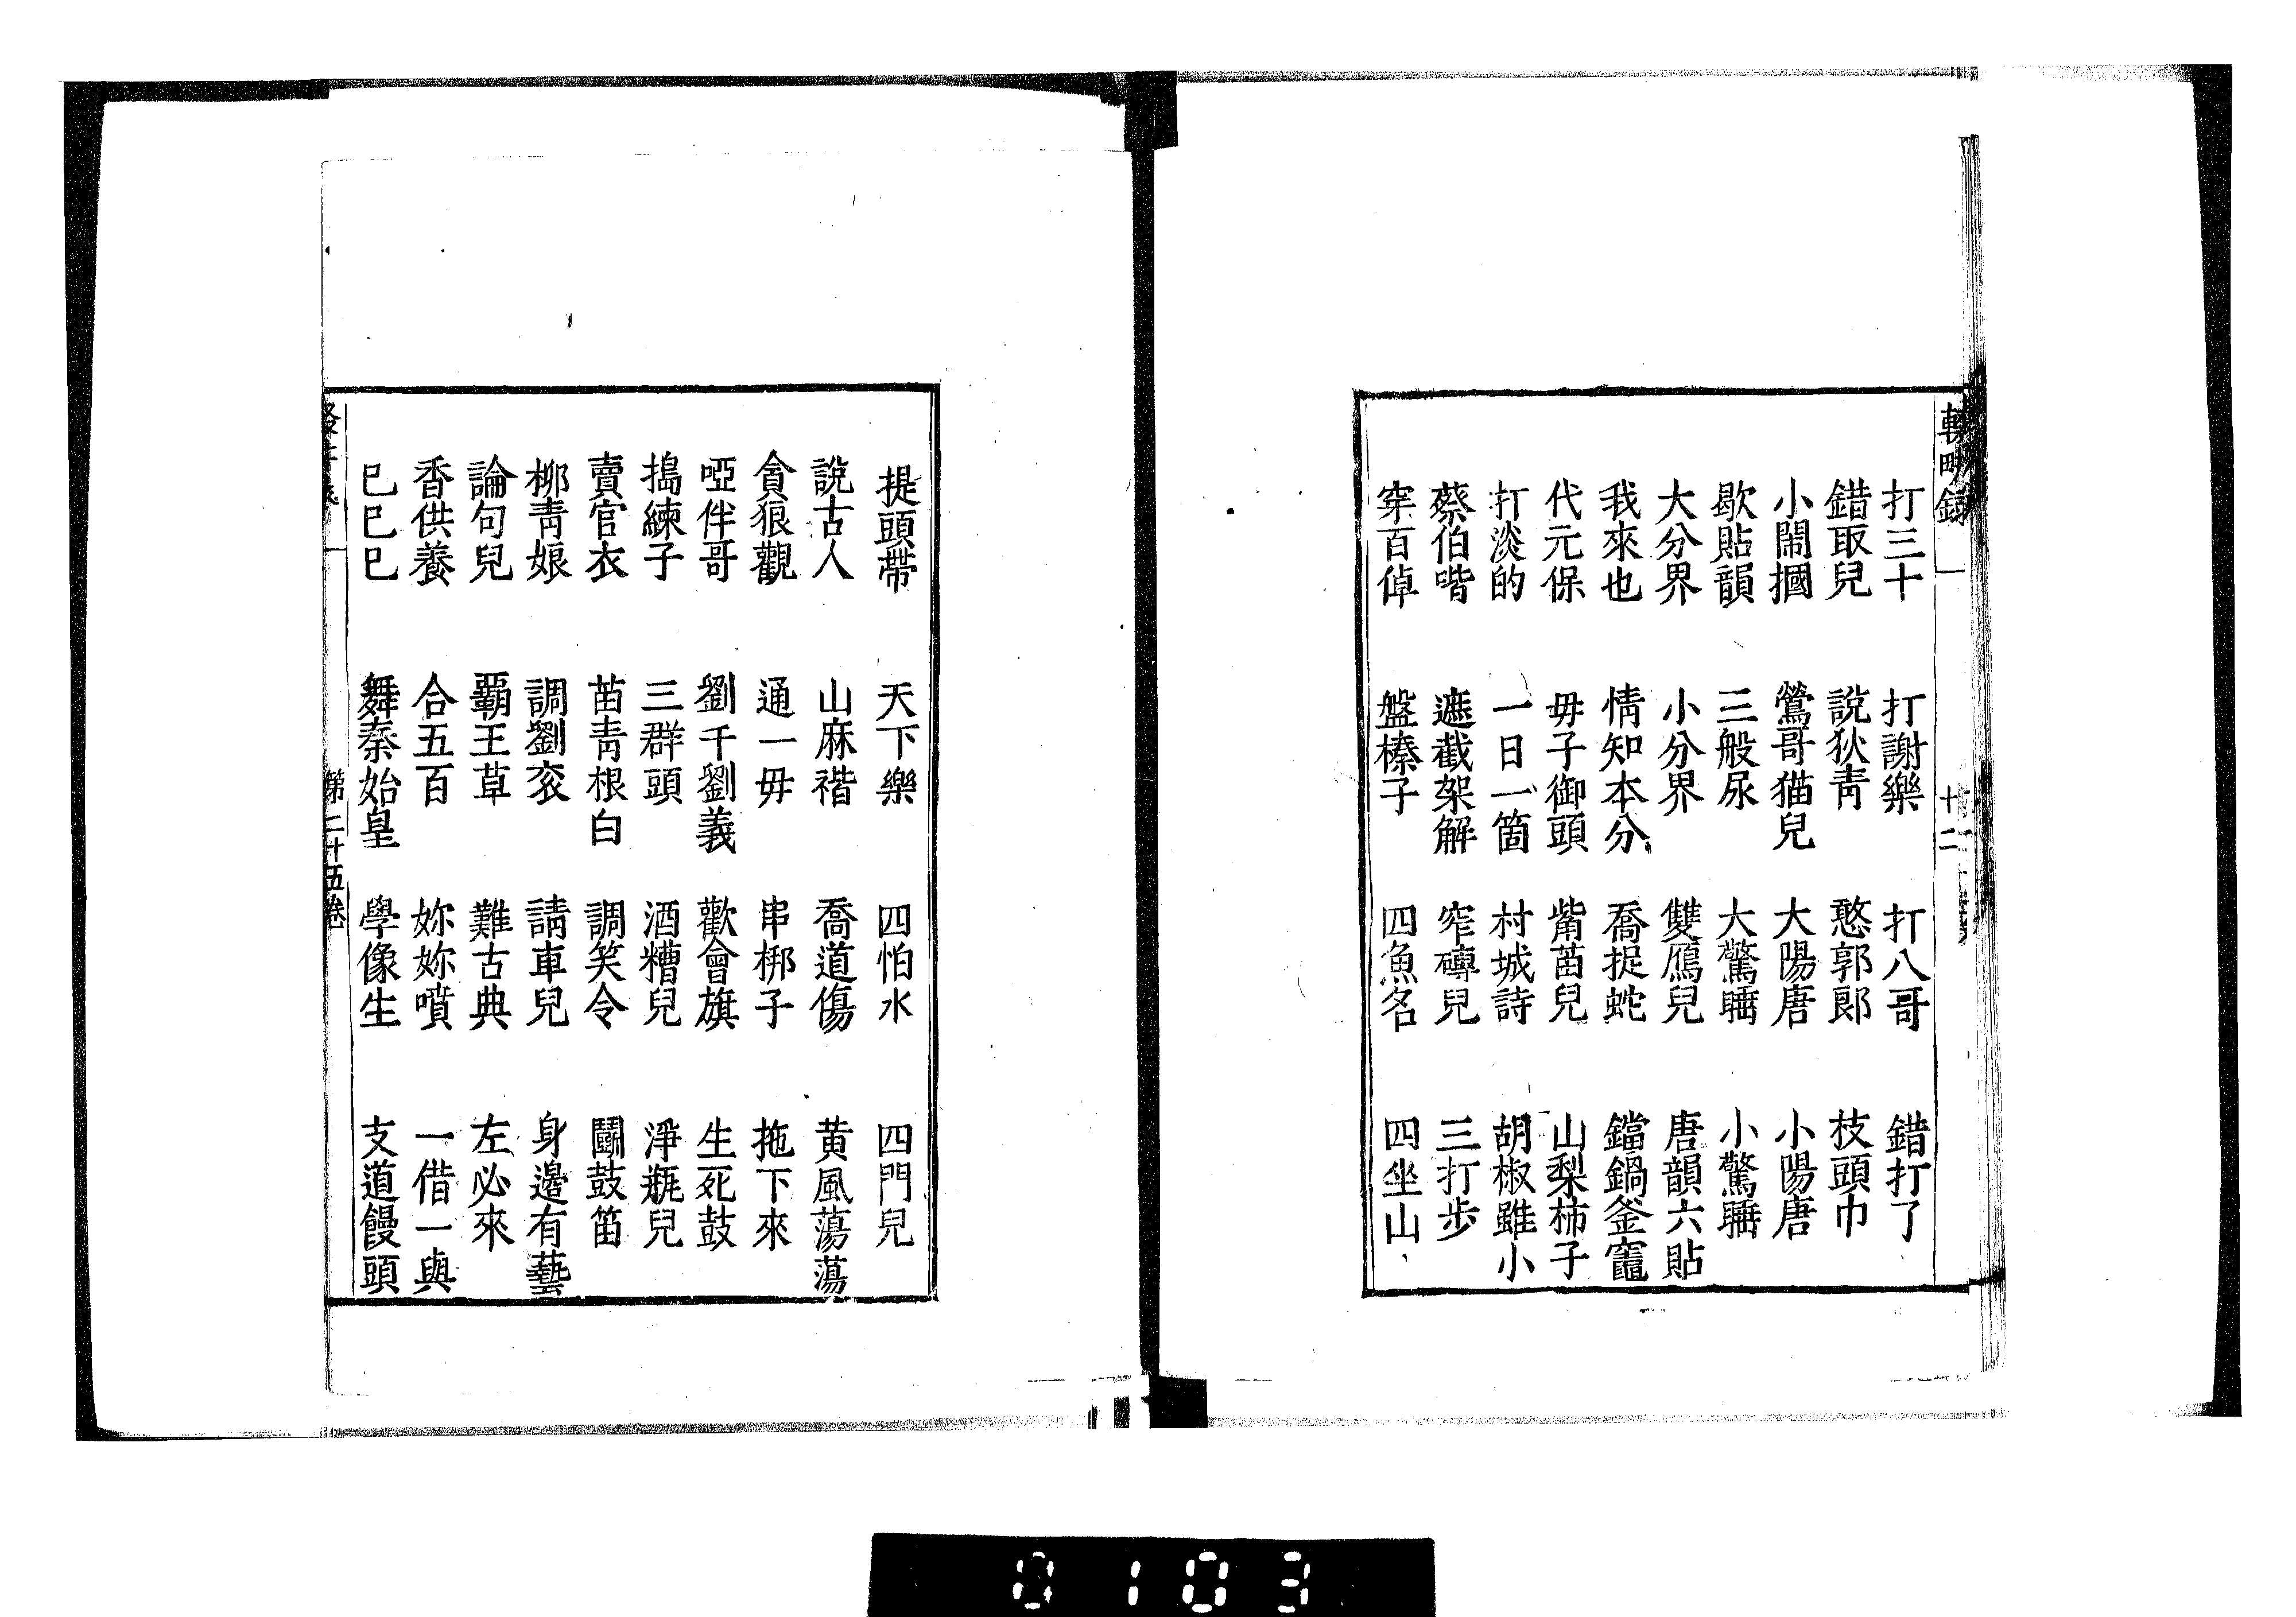 輟畊錄 十二
打三十 打謝樂 打八哥 錯打了
錯取兒 說狄青 憨郭郎 枝頭巾
小閙摑 鶯哥猫兒 大陽唐 小陽唐
歇貼韻 三般尿 大驚睡 小驚睡
大分界 小分界 雙鴈兒 唐韻六貼
我來也 情知本分 喬捉蛇 鐺鍋釜竈
代元保 毋子御頭 觜苗兒 山梨柿子
打淡的 一日一箇 村城詩 胡椒雖小
蔡伯喈 遮截架解 窄磚兒 三打步
穿百倬 盤榛子 四魚名 四坐山
提頭帶 天下樂 四怕水 四門兒
說古人 山麻䄖 喬道傷 黄風蕩蕩
貪狼觀 通一毋 串梆子 拖下來
啞伴哥 劉千劉義 歡會旗 生死鼓
搗練子 三群頭 酒糟兒 淨瓶兒
賣官衣 苗青根白 調笑令 鬬鼓笛
柳青娘 調劉衮 請車兒 身邊有藝
論句兒 覇王草 難古典 左必來
香供養 合五百 妳妳噴 一借一與
巳巳巳 舞秦始皇 學像生 支道饅頭
第二十五卷
0103